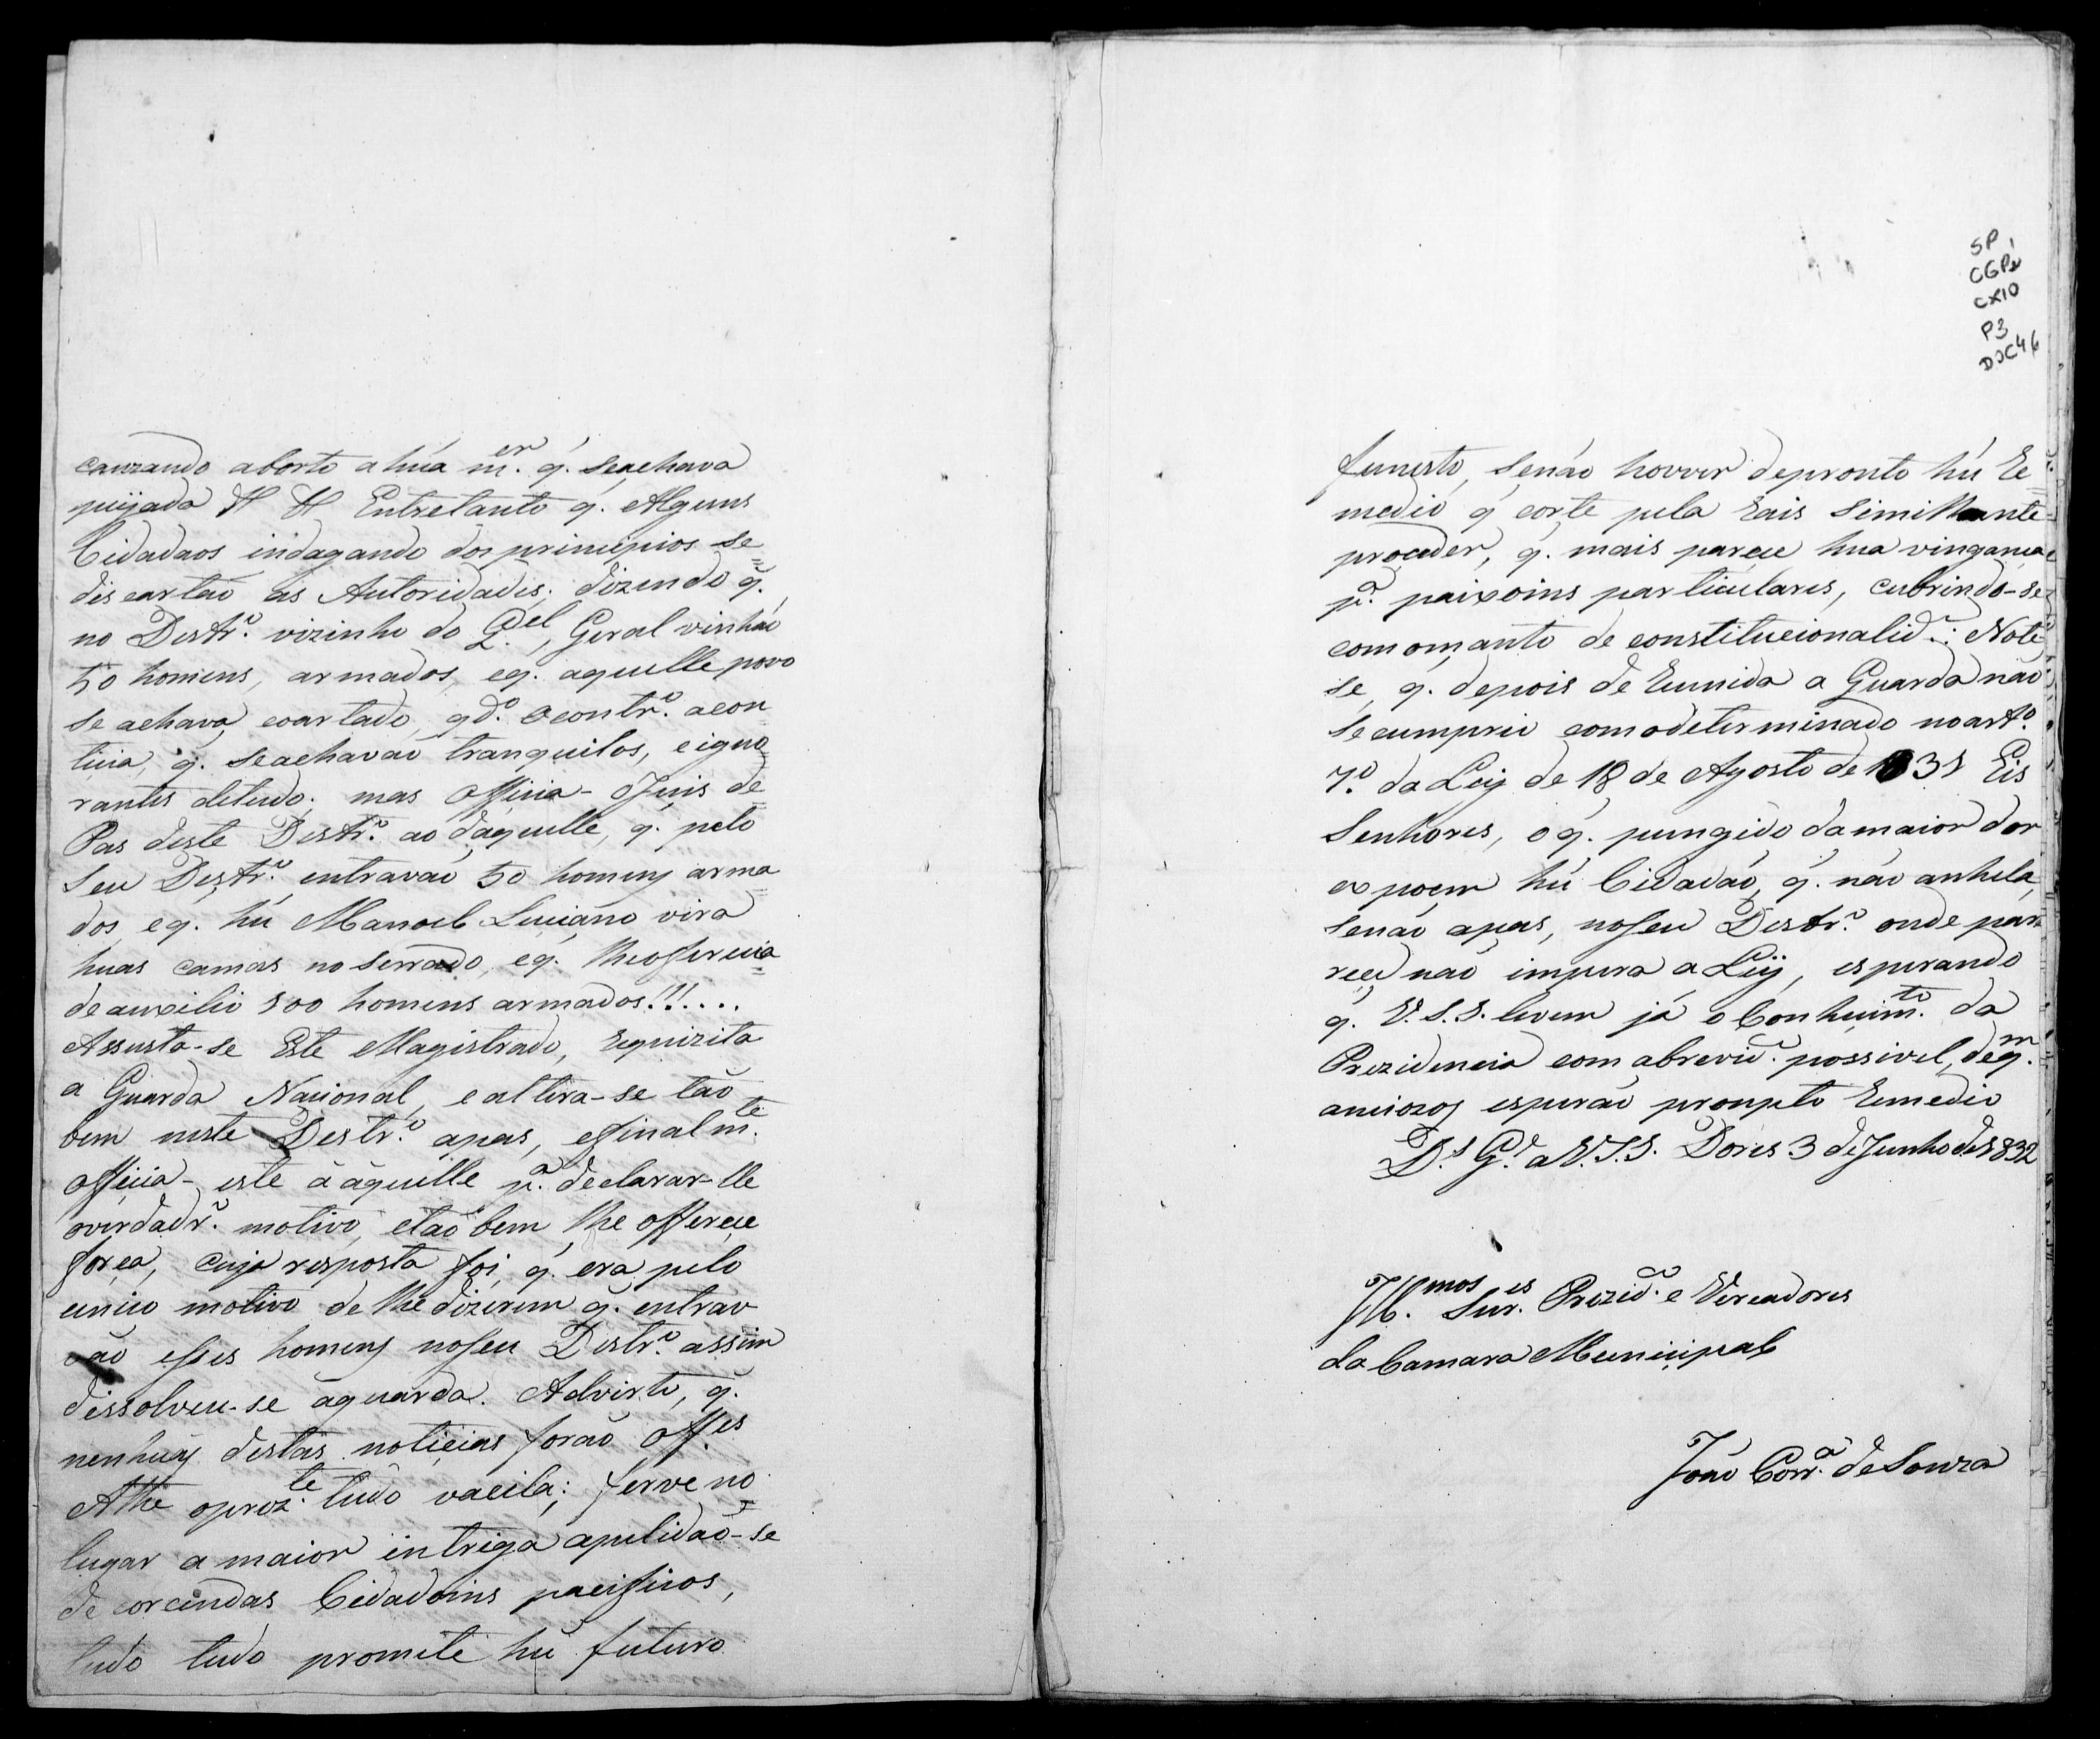 cauzando aborto a hũa m.er q̃. se achava
pejada & & Entretanto q̃. Alguns
Cidadaos indagando dos principios se
discartão as Autoridades; dizendo q̃.
no Distr.o vizinho do Q.el Geral vinhão
50 homens, armados, e q. aquelle povo
se achava coartado, qd.o o contr.o acon
tecia, q̃. se achavão tranquilos, e igno
rantes detudo; mas Officia - o Juis de
Pas deste Distr.o ao daquelle, q̃. pelo
seu Distr.o entravão 50 homens arma
dos, e q. hũ Manoel Luciano vira
huas camas no serrado, e q̃. lhe offerecia
de auxilio 500 homens armados!!!....
Assusta-se Este Magistrado, requizita
a Guarda Nacional, e altera-se tão
bem neste Distr.o apas, e finalm.te
officia - este á aquelle p.a declarar-lle
overdadr.o motivo, e tão bem lhe offerece
força, cuja resposta foi, q̃. era pelo
unico motivo de lhe dizerem q̃. entrav
ão esses homens no seu Distr.o assim
dissolveu-se aguarda. Advirto, q̃.
nenhuas destas noticias forão Off.es
Athe oprez.te tudo vacila; ferve no
lugar a maior intriga apelidão-se
de corcundas Cidadoins pacificos,
tudo tudo promete hũ futuro
SP
CGP
CX10
P3
DOC46
funesto, senão houver depronto hũ Re
medio q̃ corte pela rais simillante
proceder, q̃. mais parece hua vingança
p.a paixoins particulares, cubrindo-se
com omanto de constitucionalid.e: Note
se, q. depois de reunida a Guarda não
se cumprio com odeterminado no art.o
7.o da Ley de 18 de Agosto de 1831 Eis
Senhores, o q̃. pungido da maior dor
expoem hũ Cidadão, q̃. não anhela,
senão apas, no seu Distr.o onde pare
rece não impera a Ley, esperando
q. V.S.S. levem já o Conhecim.to da
Prezidencia com abrevid.e possivel, de q.m
anciozos esperão prompto remedio
D.s G.e a V.S.S. Dores 3 de Junho de 1832
Ill.mos Snr.es Prezid.e e Vereadores
da Camara Municipal
João Corr.a de Souza